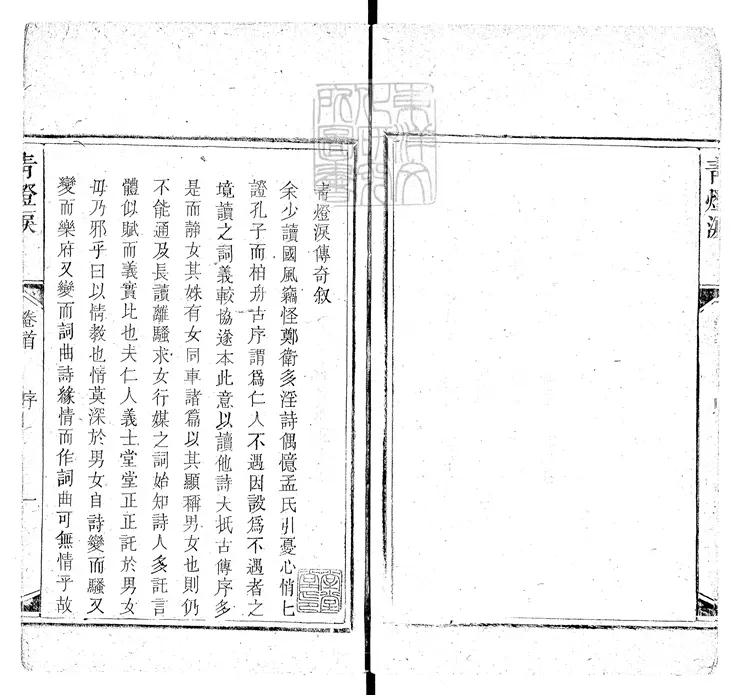 青燈淚傳奇叙
余少讀國風竊怪鄭衛多淫詩偶憶孟氏引憂心悄匕
證孔子而柏舟古序謂爲仁人不遇因設爲不遇者之
境讀之詞義較協遂本此意以讀他詩大抵古傳序多
是而靜女其姝有女同車諸篇以其顯稱男女也則仍
不能通及長讀離騷求女行媒之詞始知詩人多託言
體似賦而義實比也夫仁人義士堂堂正正託於男女
毋乃邪乎曰以情教也情莫深於男女自詩變而騷又
變而樂府又變而詞曲詩緣情而作詞曲可無情乎故
青燈淚
卷首
序
一